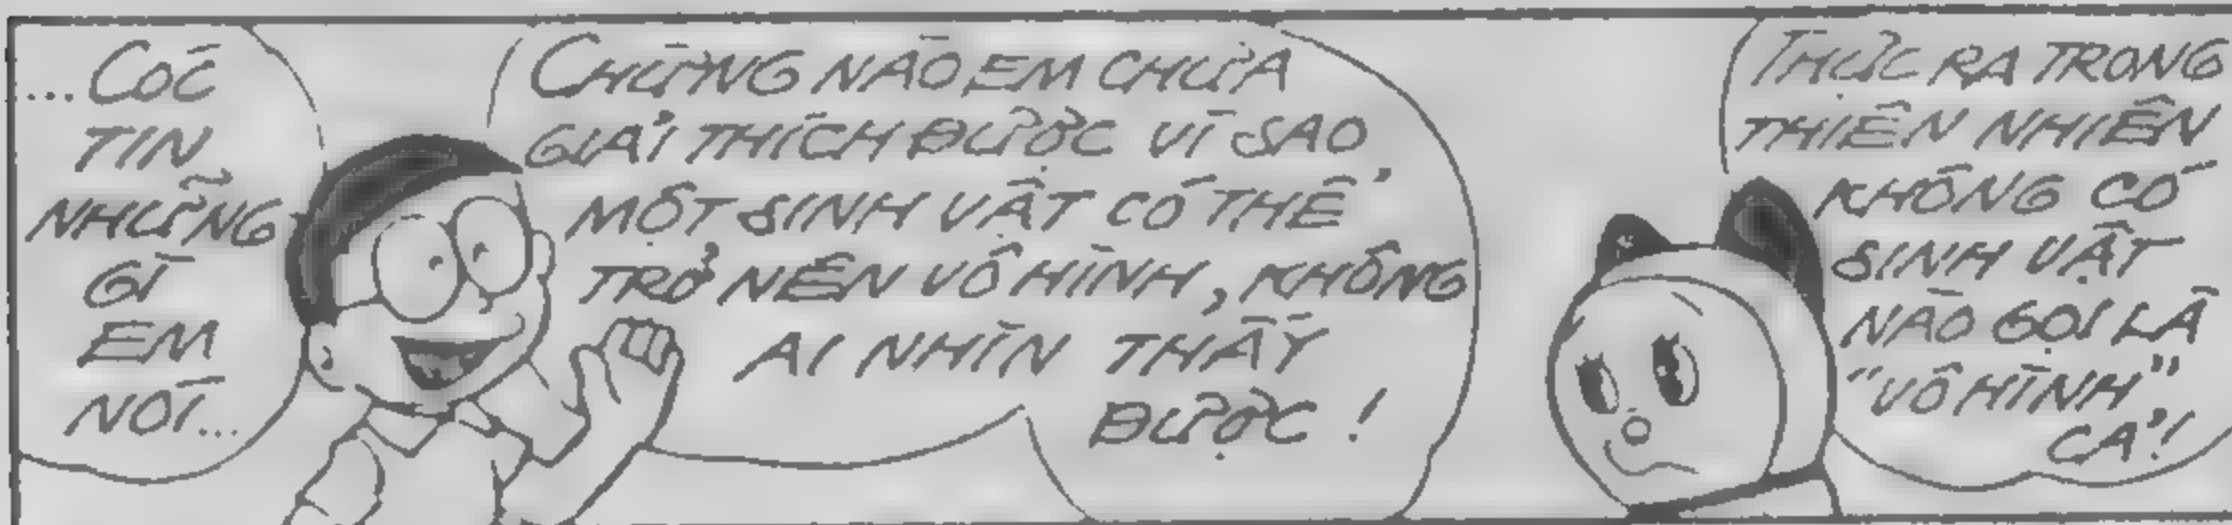 ...CÓC
TIN
NHỮNG
GÌ
EM
NÓI...
CHỪNG NÀO EM CHƯA
GIẢI THÍCH ĐƯỢC VÌ SAO
MỘT SINH VẬT CÓ THỂ
TRỞ NÊN VÔ HÌNH, KHÔNG
AI NHÌN THẤY
ĐƯỢC!
THỰC RA TRONG
THIÊN NHIÊN
KHÔNG CÓ
SINH VẬT
NÀO GỌI LÀ
"VÔ HÌNH"
CẢ!